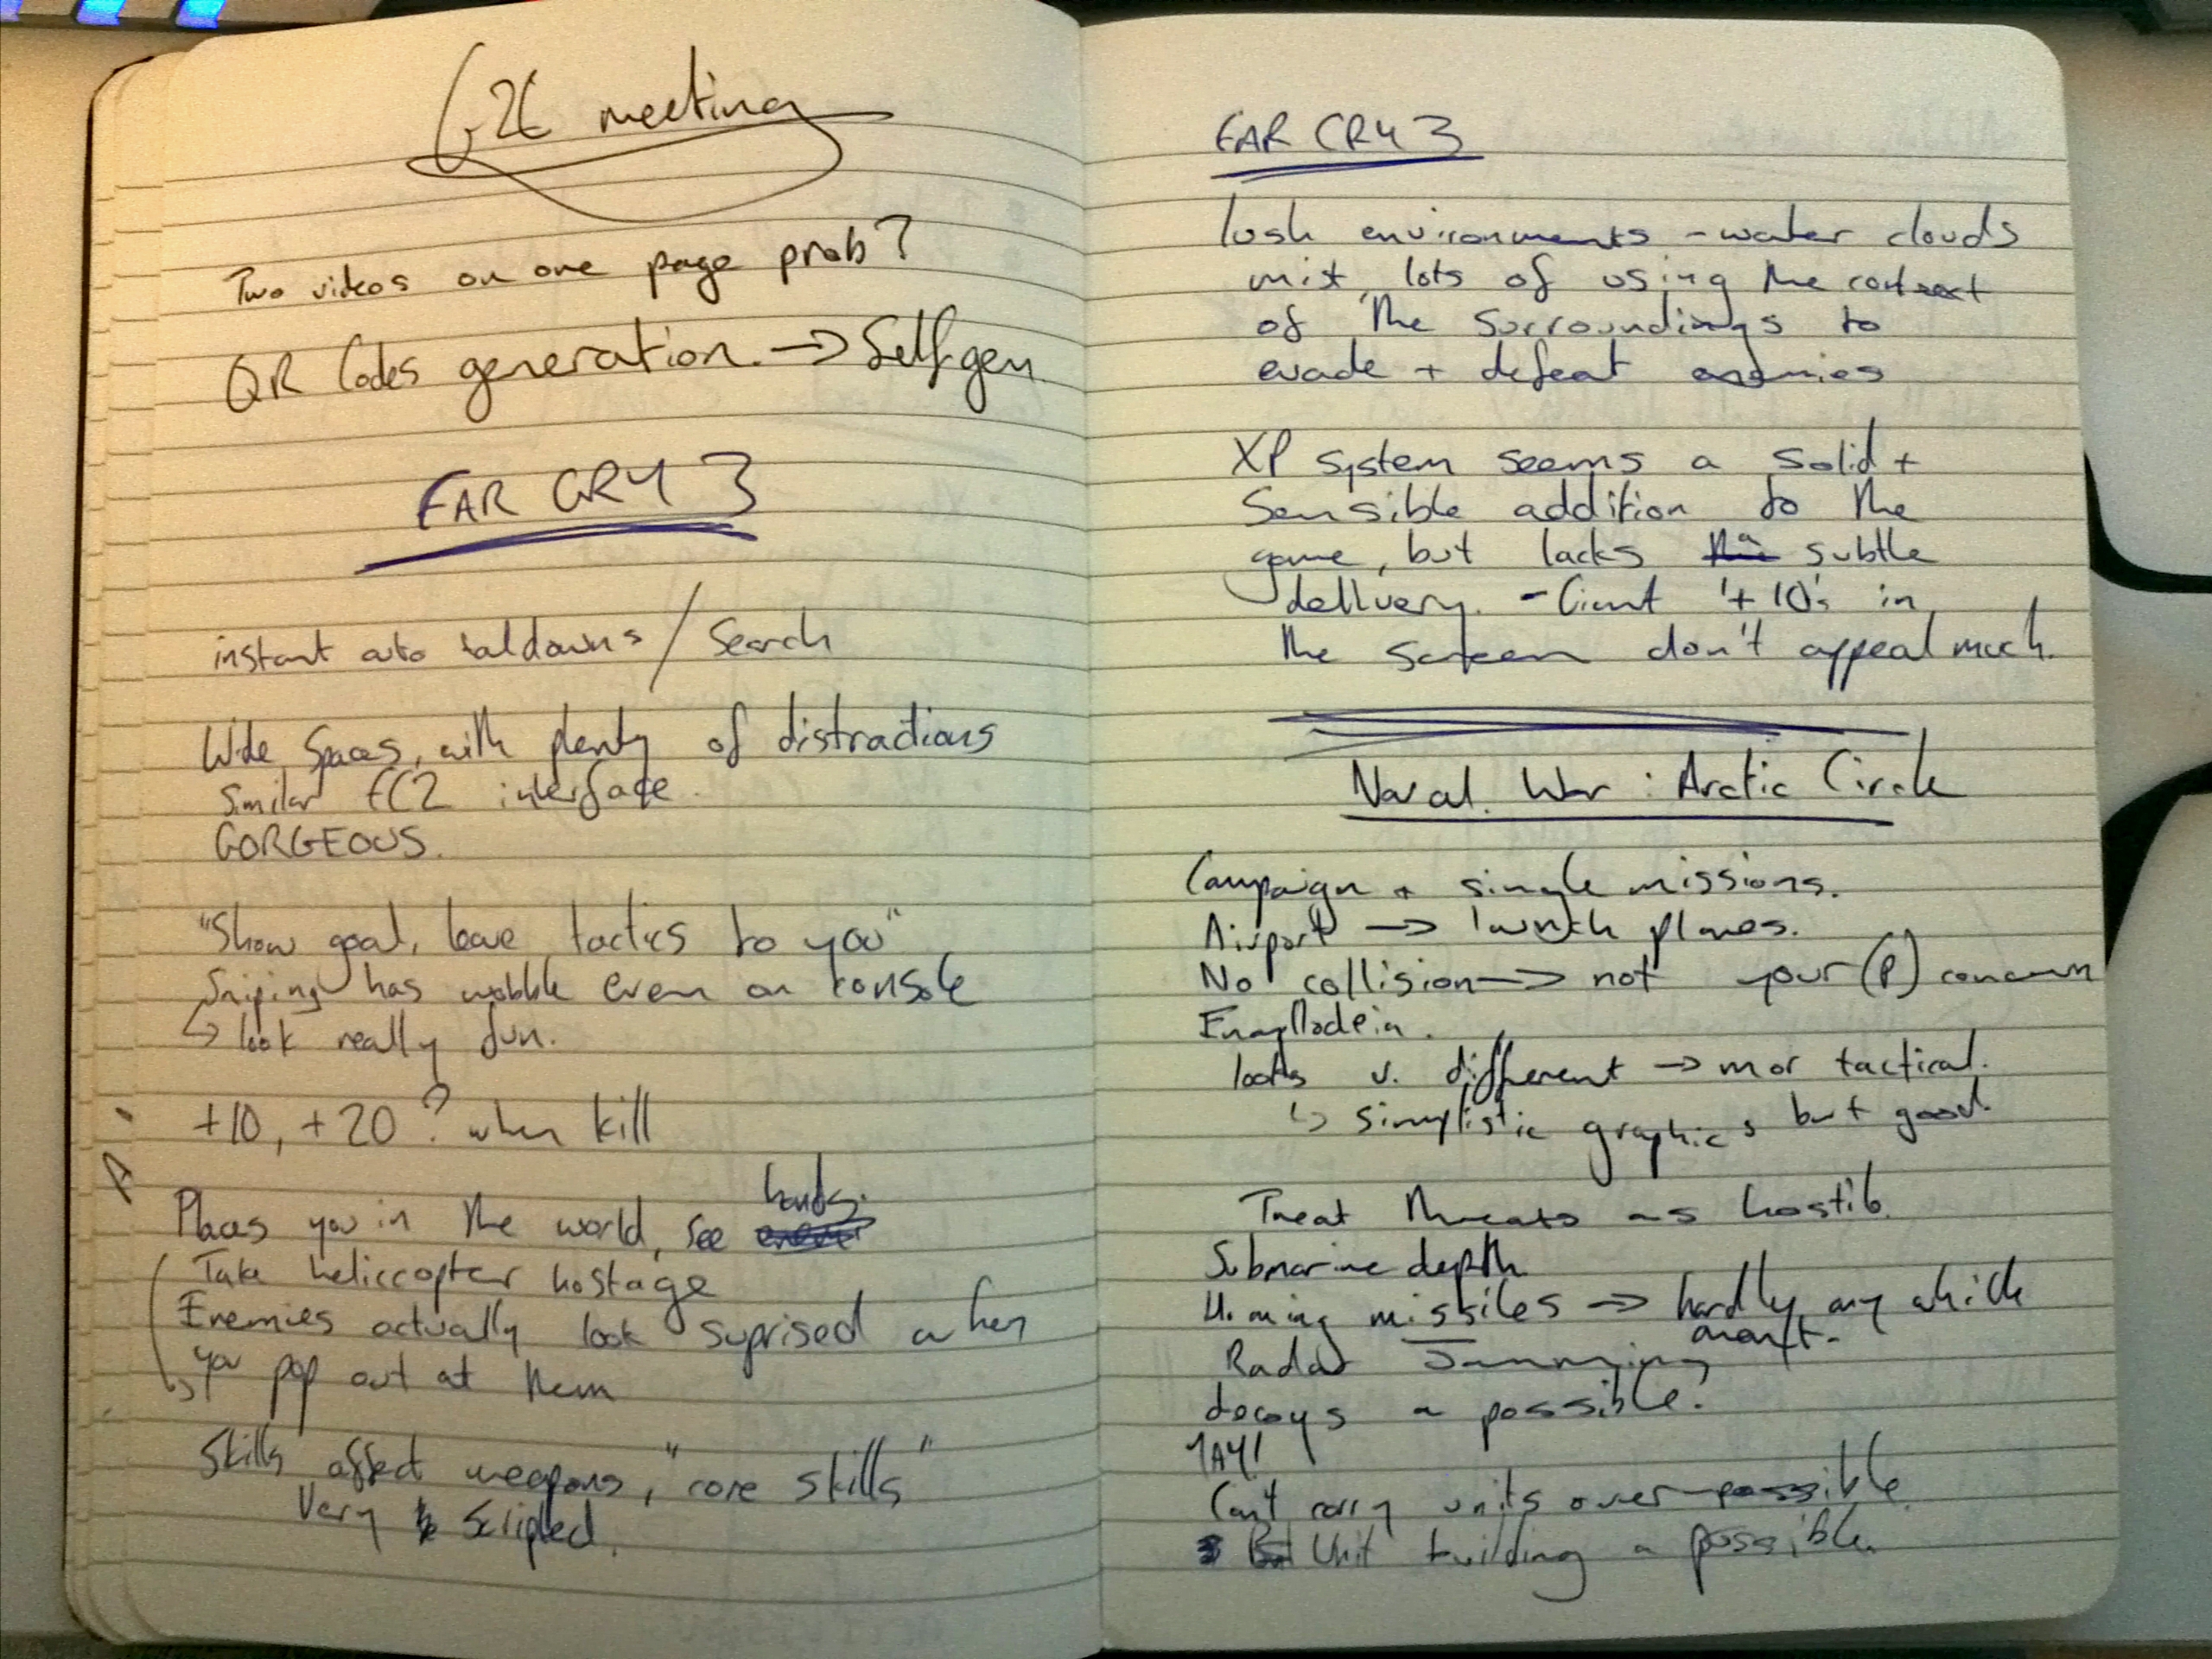 G2E meeting
Two videos on one page prob?
QR Codes generation. → Self-gen
FAR CRY 3
instant auto / Search
Wide Spaces, with plenty of distractions
Similar FC2 interface.
GORGEOUS.
"Show goal, leave tactics to you"
Sniping has wobble even on console
↳ look really fun.
+10, +20? when kill
Places you in the world, see hands.
Take heliccopter hostage
Enemies actually look suprised when
you pop out at them
Skills affect weapons, "core skills"
Very scripted.
FAR CRY 3
lush environments - water clouds
mist, lots of using the context
of the surroundings to
evade + defeat enemies
XP system seems a solid +
Sensible addition to the
game, but lacks subtle
dellivery. - Giant '+10's in
the screen don't appeal much.
Naval War : Arctic Circle
Campaign + single missions.
Airport → launch planes.
No collision → not your (P) concern
looks v. different → mor tactical.
↳ simplistic graphics but good.
Treat threats as hostile
Submarine depth
Homing missiles → hardly any which
aren't.
Radar Jamming
decoys a possible?
YAY!
Can't carry units over possible.
Unit building a possible.